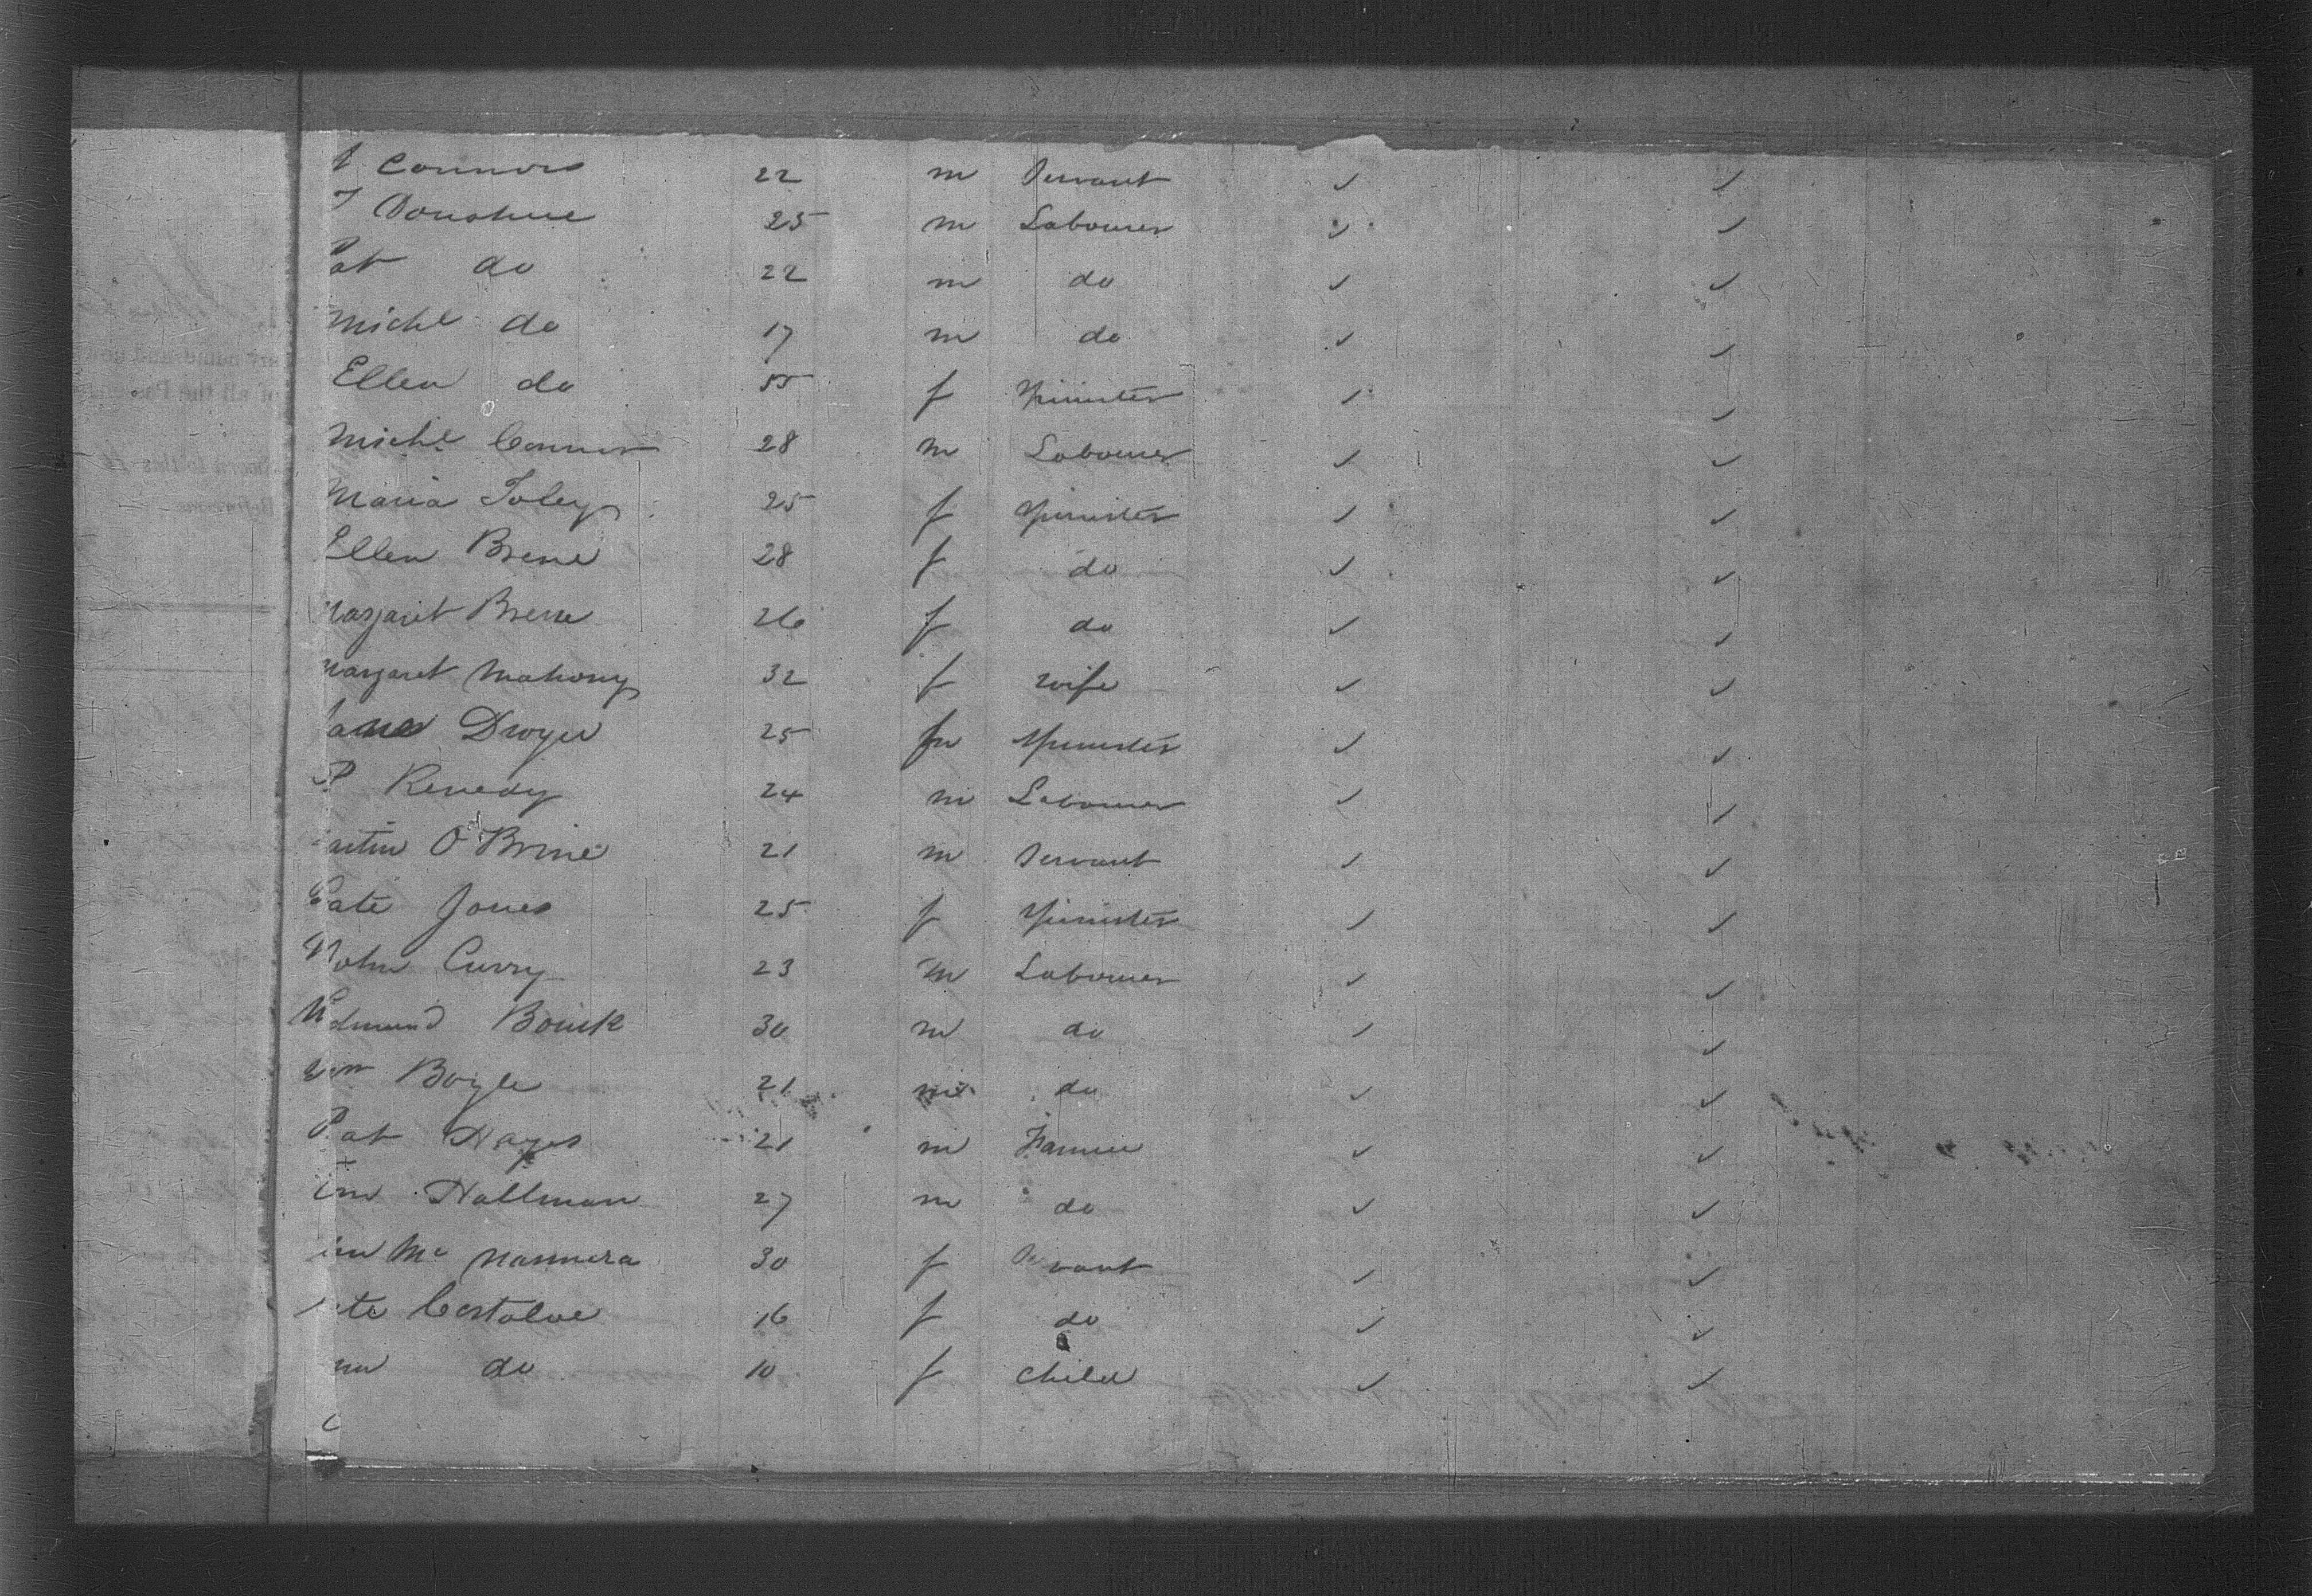 Connors 22 m Servant ✓ ✓
T Donohue 25 m Labourer ✓ ✓
Pat do 22 m do ✓ ✓
Michl do 17 m do ✓ ✓
Ellen do 55 f Spinster ✓ ✓
Michl Connor 28 m Labourer ✓ ✓
Maria Foley 25 f Spinster ✓ ✓
Ellen Brene 28 f do ✓ ✓
Margaret Brene 26 f do ✓ ✓
Margaret Mahony 32 f wife ✓ ✓
Jane Dwyer 25 f Spinster ✓ ✓
P Kenedy 24 m Labourer ✓ ✓
artin O'Brine 21 m Servant ✓ ✓
Cate Jones 25 f Spinster ✓ ✓
John Curry 23 m Labourer ✓ ✓
Edmund 30 m do ✓ ✓
Wm Boyle 21 m do ✓ ✓
Pat Hayes 21 m Farmer ✓ ✓
Hallman 27 m do ✓ ✓
Mc Nannera 30 f Servant ✓ ✓
te Costaloe 16 f do ✓ ✓
do 10 f child ✓ ✓